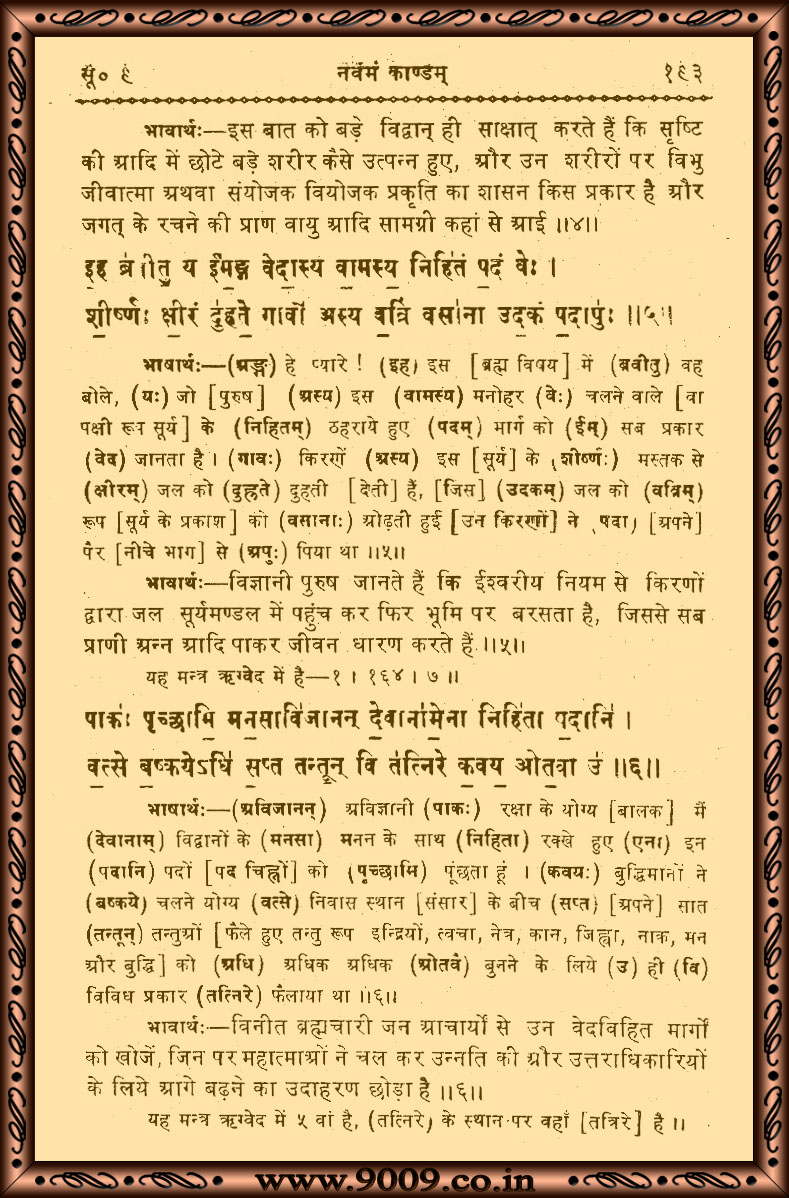 सू० ९ नवमं काण्डम् १९३
भावार्थः—इस बात को बड़े विद्वान् ही साक्षात् करते हैं कि सृष्टि
की आदि में छोटे बड़े शरीर कैसे उत्पन्न हुए, और उन शरीरों पर विभु
जीवात्मा अथवा संयोजक वियोजक प्रकृति का शासन किस प्रकार है और
जगत् के रचने की प्राण वायु आदि सामग्री कहां से आई ॥४॥
इ॒ह ब्र॑वीतु॒ य ई॑म॒ङ्ग वेदा॒स्य वा॒मस्य॒ निहि॑तं प॒दं वेः ।
शी॒र्ष्णः क्षी॒रं दु॑ह्रते॒ गावो॑ अस्य व॒व्रिं वसा॑ना उद॒कं प॒दापुः॑ ॥५॥
भाषार्थः—(अङ्ग) हे प्यारे ! (इह) इस [ब्रह्म विषय] में (ब्रवीतु) वह
बोले, (यः) जो [पुरुष] (अस्य) इस (वामस्य) मनोहर (वेः) चलने वाले [वा
पक्षी रूप सूर्य] के (निहितम्) ठहराये हुए (पदम्) मार्ग को (ईम्) सब प्रकार
(वेद) जानता है । (गावः) किरणें (अस्य) इस [सूर्य] के (शीर्ष्णः) मस्तक से
(क्षीरम्) जल को (दुह्रते) दुहती [देती] हैं, [जिस] (उदकम्) जल को (वव्रिम्)
रूप [सूर्य के प्रकाश] को (वसानाः) ओढ़ती हुई [उन किरणों] ने (पदा) [अपने]
पैर [नीचे भाग] से (अपुः) पिया था ॥५॥
भावार्थः—विज्ञानी पुरुष जानते हैं कि ईश्वरीय नियम से किरणों
द्वारा जल सूर्यमण्डल में पहुंच कर फिर भूमि पर बरसता है, जिससे सब
प्राणी अन्न आदि पाकर जीवन धारण करते हैं ॥५॥
यह मन्त्र ऋग्वेद में है—१ । १६४ । ७ ॥
पाकः॑ पृच्छामि॒ मन॒सावि॑जानन् दे॒वाना॑मे॒ना निहि॑ता प॒दानि॑ ।
व॒त्से ब॒ष्कयेऽधि॑ स॒प्त तन्तू॒न् वि त॑त्निरे क॒वय॒ ओत॒वा उ॑ ॥६॥
भाषार्थः—(अविजानन्) अविज्ञानी (पाकः) रक्षा के योग्य [बालक] मैं
(देवानाम्) विद्वानों के (मनसा) मनन के साथ (निहिता) रक्खे हुए (एना) इन
(पदानि) पदों [पद चिह्नों] को (पृच्छामि) पूंछता हूं । (कवयः) बुद्धिमानों ने
(बष्कये) चलने योग्य (वत्से) निवास स्थान [संसार] के बीच (सप्त) [अपने] सात
(तन्तून्) तन्तुओं [फैले हुए तन्तु रूप इन्द्रियों, त्वचा, नेत्र, कान, जिह्वा, नाक, मन
और बुद्धि] को (अधि) अधिक अधिक (ओतवै) बुनने के लिये (उ) ही (वि)
विविध प्रकार (तत्निरे) फैलाया था ॥६॥
भावार्थः—विनीत ब्रह्मचारी जन आचार्यों से उन वेदविहित मार्गों
को खोजें, जिन पर महात्माओं ने चल कर उन्नति की और उत्तराधिकारियों
के लिये आगे बढ़ने का उदाहरण छोड़ा है ॥६॥
यह मन्त्र ऋग्वेद में ५ वां है, (तत्निरे) के स्थान पर वहाँ [तत्रिरे] है ॥
www.9009.co.in